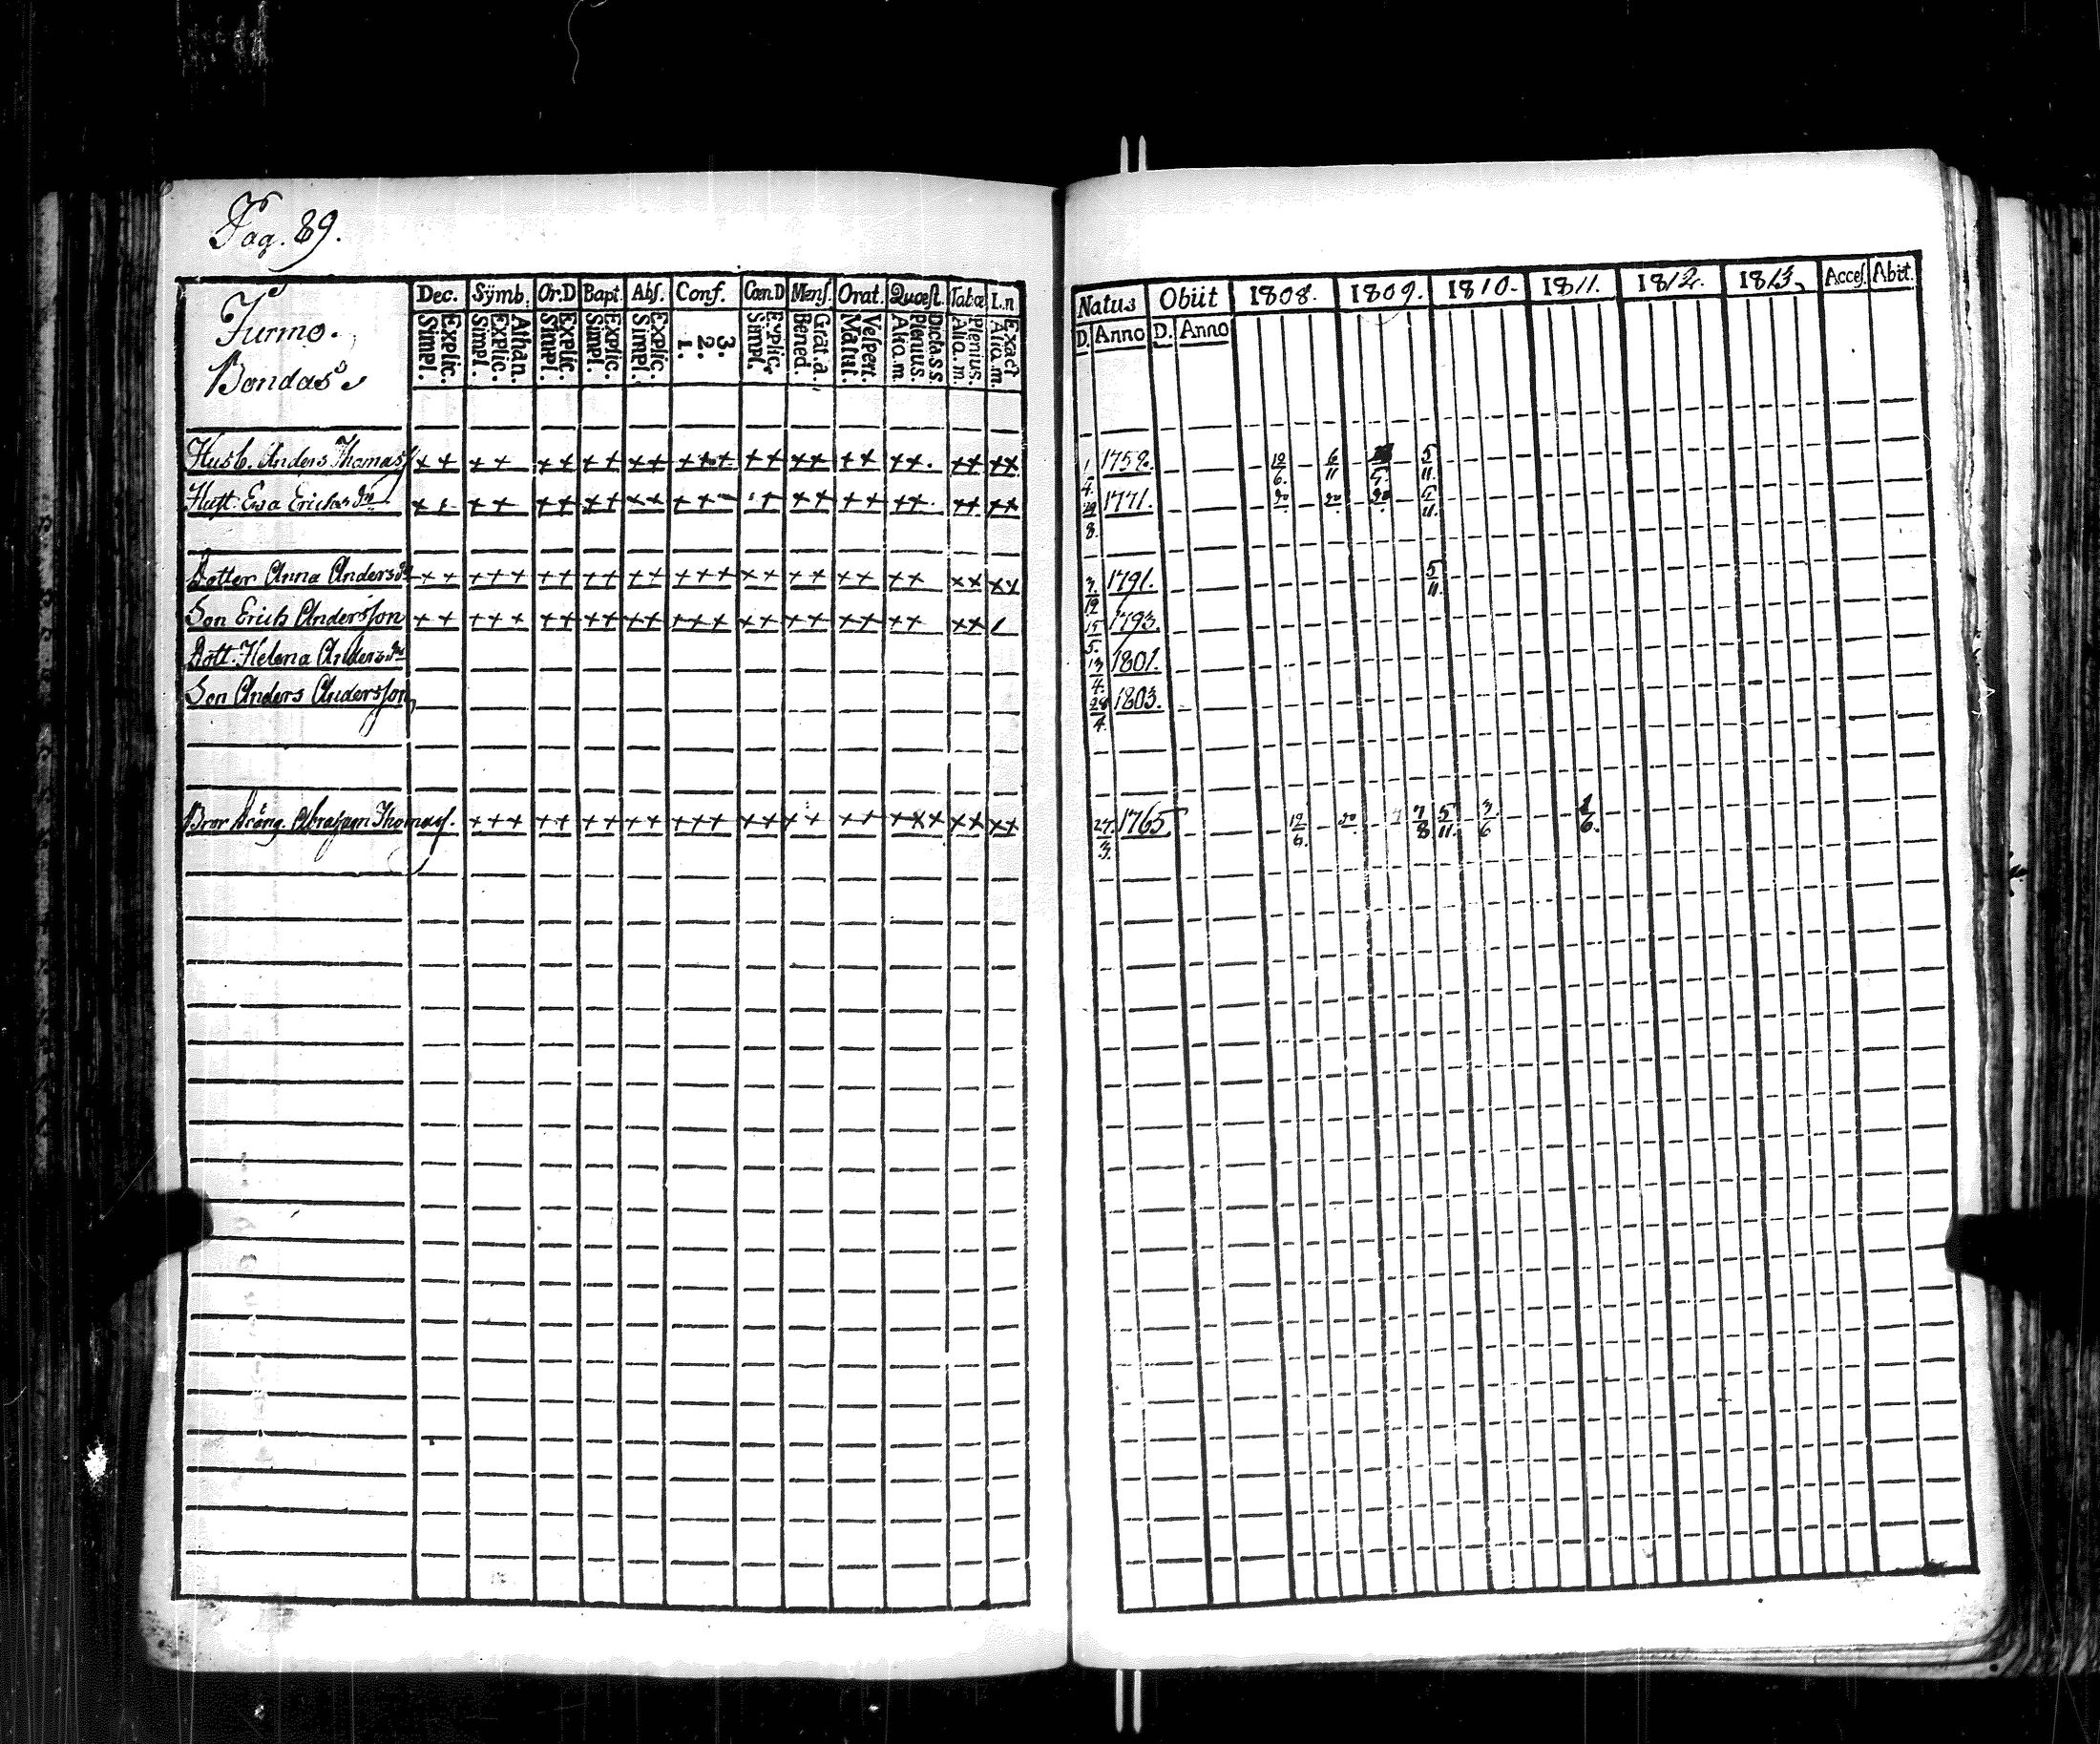 Pag. 89.
Furmo.
Bondas
Dec. Symb. Or.D Bapt. Abs. Conf. Cœn.D Mens. Orat. Quæst. Tabæ I.n
Explic. Simpl. Athan. Explic. Simpl. Explic. Simpl. Explic. Simpl. Explic. Simpl. 3. 2. 1. Explic. Simpl. Grat. a. Bened. Vespert. Matut. Dicta.s.s. Plenius. Alio.m. Plenius. Alia.m. Exact Alia.m.
Husb. Anders Thomass. ++ ++ ++ ++ ++ +++ ++ ++ ++ ++. ++ ++
Hust. Eva Ericksdr ++ ++ ++ ++ ++ ++ ++ ++ ++ ++ ++
Dotter Anna Andersdr ++ +++ ++ ++ ++ +++ ++ ++ ++ ++ ++ ++
Son Erich Andersson ++ +++ ++ ++ ++ +++ ++ ++ ++ ++ ++
Dott. Helena Andersdr
Son Anders Andersson
Bror Dräng. Abraham Thomass. +++ ++ ++ ++ +++ ++ ++ ++ +++ ++ ++
Natus Obiit 1808. 1809. 1810. 1811. 1812. 1813. Acces. Abit.
D. Anno D. Anno
1/4. 1752. 12/6. 6/11 5/11.
8. 1771. 5/11.
3/12 1791. 5/11.
15/5. 1793.
13/4. 1801.
28/4. 1803.
27/3. 1765 12/6. 7/8 5/11. 3/6 1/6.